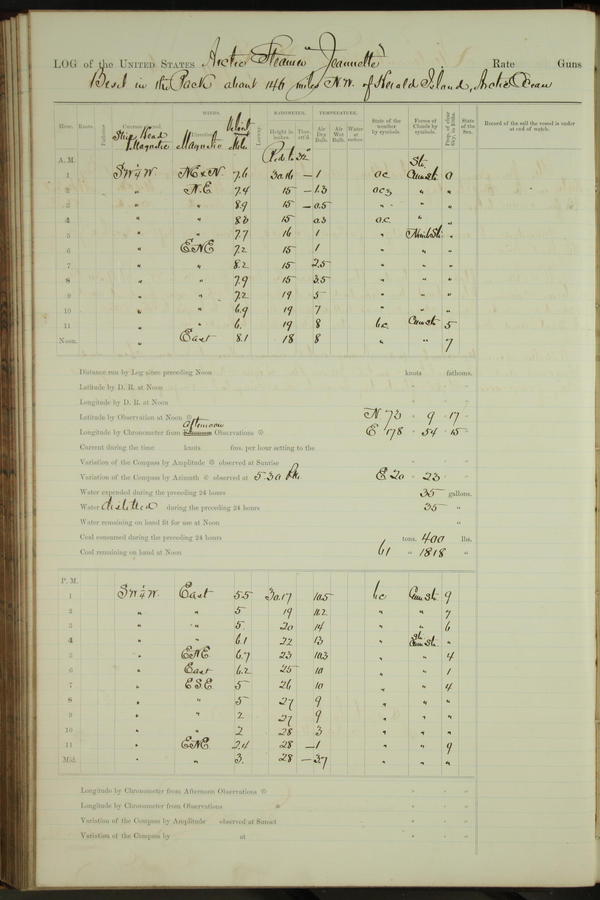 LOG of the UNITED STATES Arctic Steamer "Jeannette" Rate Guns
Beset in the Pack about 146 miles N.W. of Herald Island, Arctic Ocean
WINDS. BAROMETER. TEMPERATURE.
Hour. Knots. Fathoms. Courses steered. Direction. Leeway. Height in inches. Ther. att'd. Air Dry Bulb. Air Wet Bulb. Water at surface. State of the weather by symbols. Forms of Clouds by symbols. Prop. of clear Sky, in 10ths. State of the Sea. Record of the sail the vessel is under at end of watch.
Ship's Head Magnetic Magnetic Miles
A. M. Red. to 32° Str.
1 SW ¼ W. NE x N. 7.6 30.16 —1 oc Cum st. 0
2 " N.E 7.4 15 —1.3 ocs " "
3 " " 8.9 15 —0.5 " " "
4 " " 8.8 15 0.3 o.c. " "
5 " " 7.7 16 1 " Nimb St. "
6 " ENE 7.2 15 1 " " "
7 " " 8.2 15 2.5 " " "
8 " " 7.9 15 3.5 " " "
9 " " 7.2 19 5 " " "
10 " " 6.9 19 7 " " "
11 " " 6. 19 8 b.c. Cum st. 5
Noon. " East 8.1 18 8 " " 7
Distance run by Log since preceding Noon knots fathoms.
Latitude by D. R. at Noon ° ' "
Longitude by D. R. at Noon ° ' "
Latitude by Observation at Noon N 73 ° 9 ' 17 "
Longitude by Chronometer from afternoon Observations E 178 ° 54 ' 15 "
Current during the time knots fms. per hour setting to the
Variation of the Compass by Amplitude observed at Sunrise
Variation of the Compass by Azimuth observed at 5.30 P.M. E 20 ° 23 '
Water expended during the preceding 24 hours 35 gallons.
Water distilled during the preceding 24 hours 35 "
Water remaining on hand fit for use at Noon "
Coal consumed during the preceding 24 hours tons. 400 lbs.
Coal remaining on hand at Noon 61 " 1818 "
P. M.
1 SW ¼ W. East 5.5 30.17 10.5 b.c Cum St. 9
2 " " 5 19 11.2 " " 7
3 " " 5. 20 14 " " 6
4 " " 6.1 22 13 " St. Cum St. "
5 " ENE 6.7 23 10.3 " " 4
6 " East 6.2 25 10 " " 1
7 " E.S.E 5 26 10 " " 4
8 " " 5 27 9 " " "
9 " " 2 27 9 " " "
10 " " 2 28 3 " " "
11 " ENE 2.4 28 —1 " " 9
Mid. " " 3. 28 —3.7 " " "
Longitude by Chronometer from Afternoon Observations ° ' "
Longitude by Chronometer from Observations ° ' "
Variation of the Compass by Amplitude observed at Sunset ° ' "
Variation of the Compass by at ° ' "